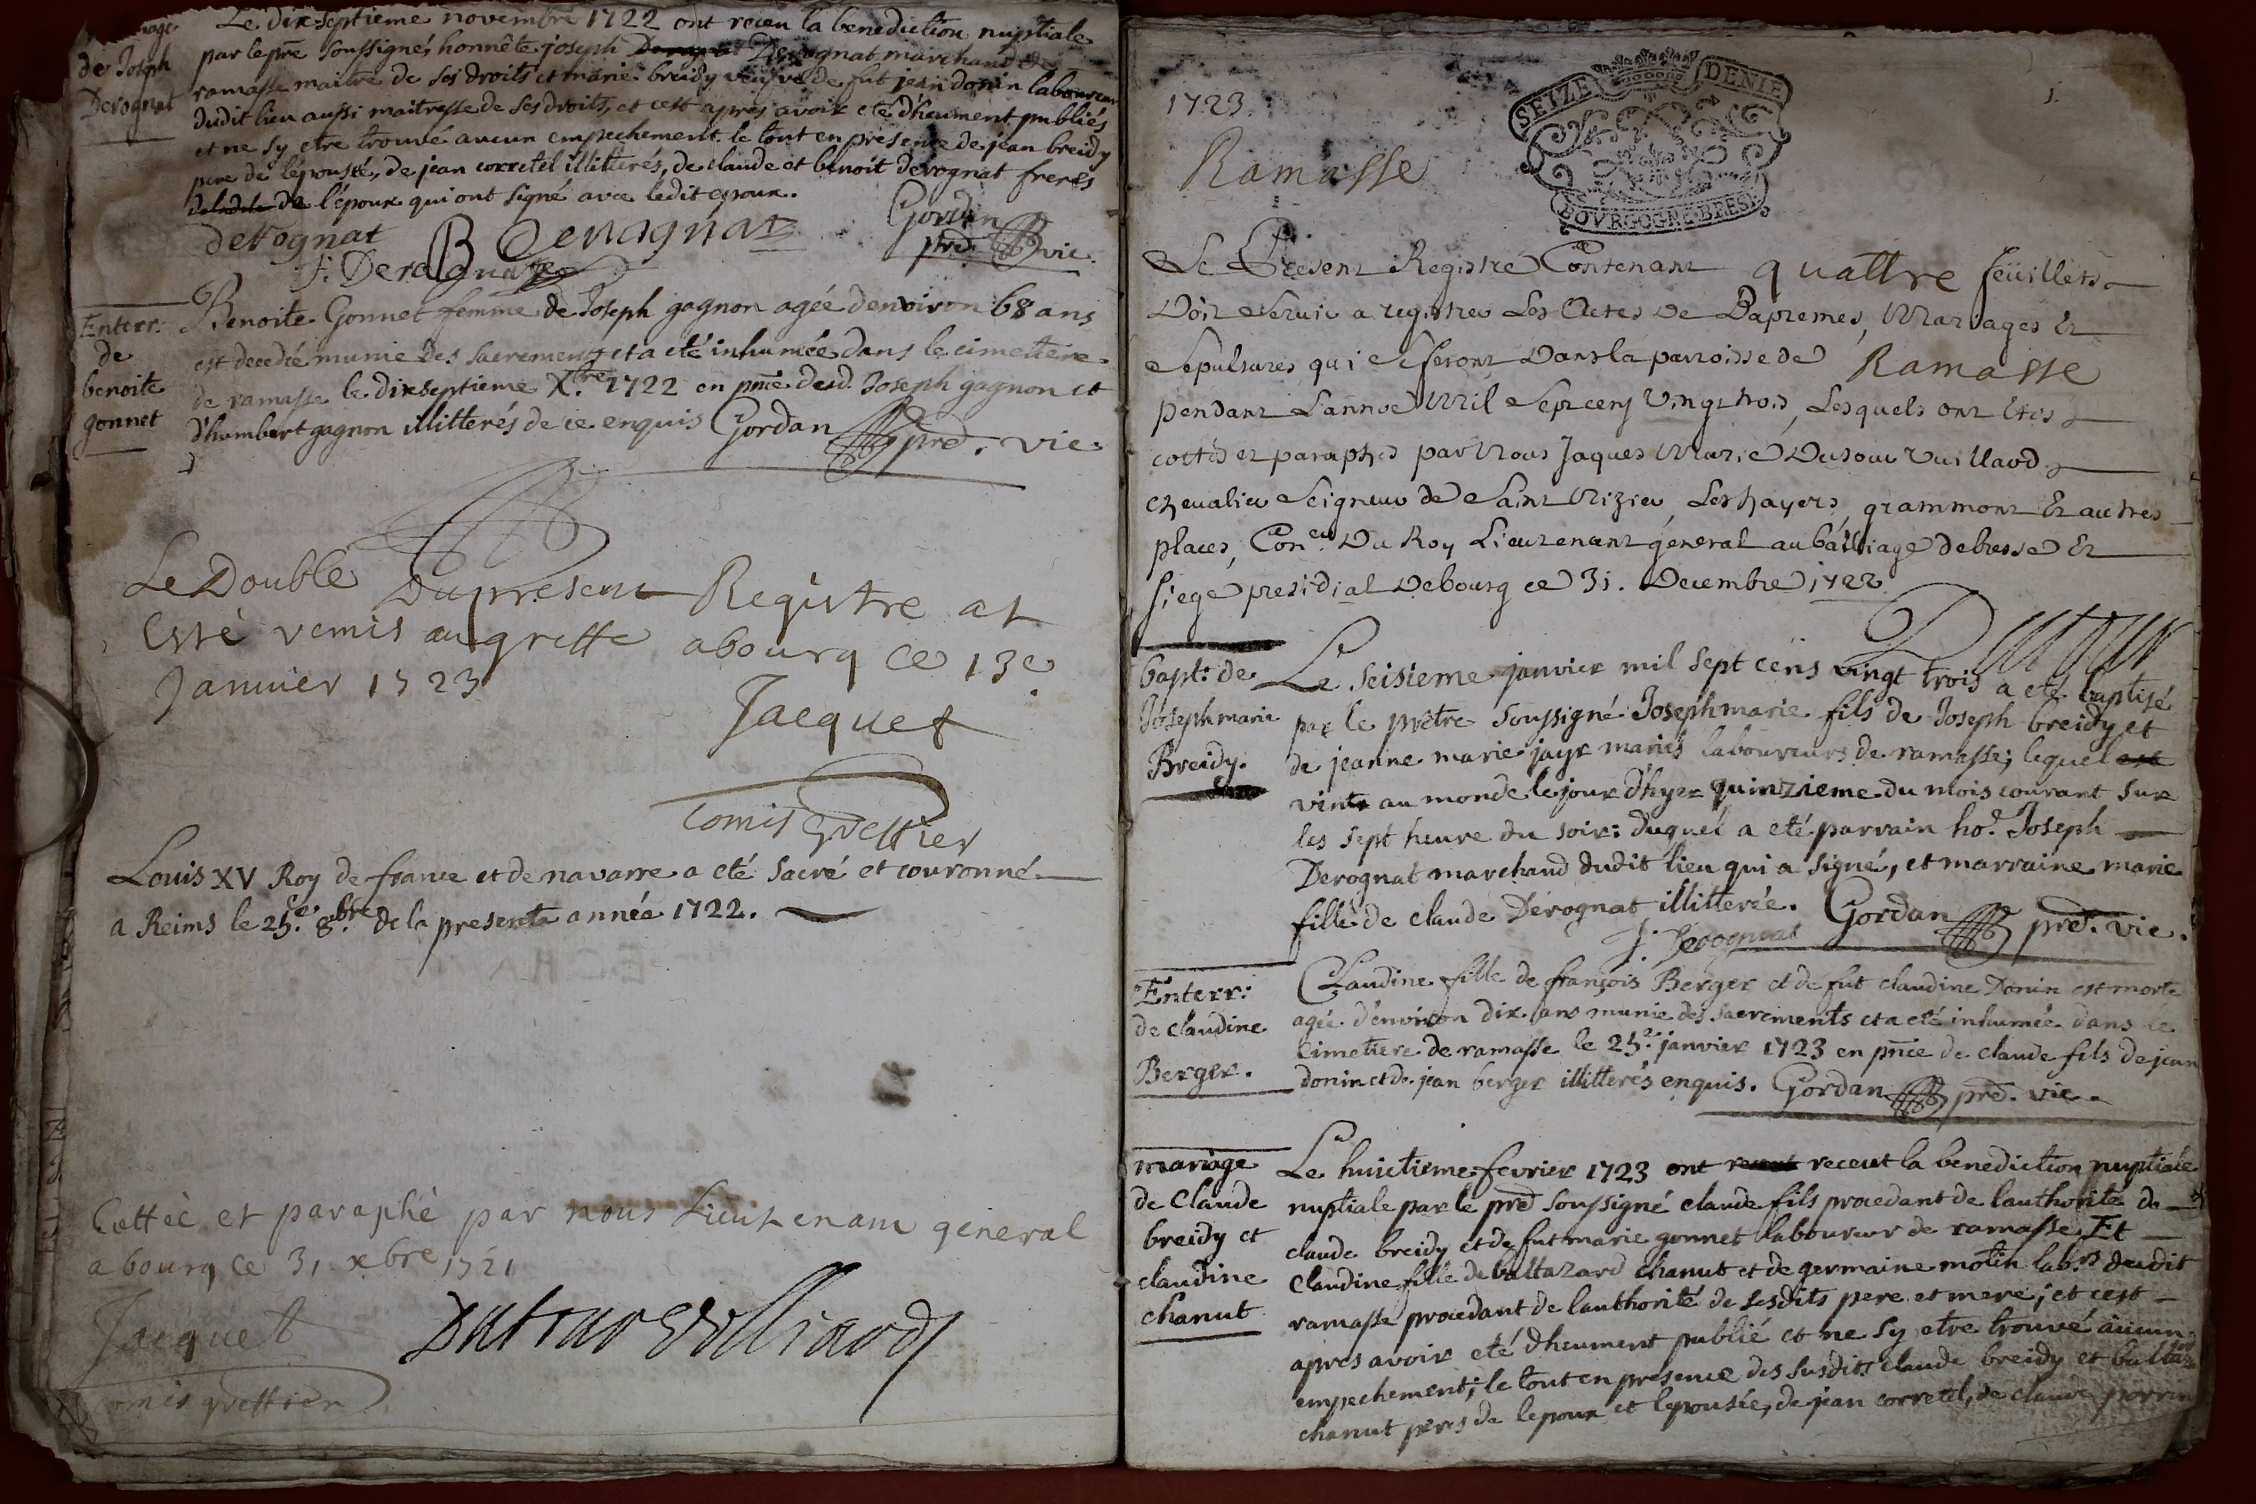 mariage
de Joseph
Derognat
Le dix-septieme novembre 1722 ont receu la benediction nuptiale
par le pre soussigné, honnête joseph Derognat marchand de
ramasse maitre de ses droits et marie breidy veuve de fut jean donin laboureur
dudit lieu aussi maitresse de ses droits, et c'est apres avoir eté d'heument publiés
et ne sy etre trouvé aucun empechement. le tout en presence de jean breidy
pere de l'épousée, de jean corretel illitterés, de claude et benoit derognat freres
de l'époux qui ont signé avec ledit epoux.
derognat B Derognat Gordan
J. Derognat pred. vic.
Enterr:
de
benoite
gonnet
Benoite Gonnet femme de Joseph gagnon agée denviron 68 ans
est decedée munie des sacrements et a eté inhumée dans le cimetiere
de ramasse le dixseptieme Xbre 1722 en pnce dud. Joseph gagnon et
d'humbert gagnon illitterés de ce enquis Gordan pred. vic.
Le Double Du present Registre at
Esté remis au greffe a bourg ce 13e
Janvier 1723
Jacquet
Comis Greffier
Louis XV Roy de france et de navarre a eté sacré et couronné
a Reims le 25e. 8bre de la presente année 1722.
Cottée et paraphé par nous Lieutenant general
a bourg ce 31 xbre 1721
Jacquet
Comis greffier
1723.
1.
SEIZE DENIE
BOVRGOGNE BRESSE
Ramasse
Le Present Registre Contenant quattre feüillets
Doit servir a registrer Les Actes de Baptemes, Mariages Et
Sepultures qui se feront Dans la parroisse de Ramasse
pendant L'année Mil Sept cens Vingt trois, Lesquels ont Etés
cottés et paraphés par Nous Jaques Marie Dutour Vuillard
chevalier Seigneur de Saint Nizier Les hayers, grammont Et autres
places, Coner. Du Roy Lieutenant general au bailliage de bresse Et
siege presidial De bourg ce 31. Decembre 1722
Dutour
bapt: de
Joseph marie
Breidy.
Le seisieme janvier mil sept cens vingt trois a eté baptisé
par le prêtre soussigné Joseph marie fils de Joseph breidy et
de jeanne marie jayr mariés laboureurs de ramasse; lequel est
vint au monde le jour d'hyer quinzieme du mois courant sur
les sept heure du soir: duquel a eté parrain ho.d Joseph
Derognat marchand dudit lieu qui a signé, et marraine marie
fille de claude Derognat illitterée. Gordan pred. vic.
J. Derognat
Enterr:
de claudine
Berger.
Claudine fille de françois Berger et de fut claudine Donin est morte
agée d'environ dix ans munie des sacrements et a eté inhumée dans le
cimetiere de ramasse le 25e. janvier 1723 en pnce de claude fils de jean
donin et de jean berger illitterés enquis. Gordan pred. vic.
mariage
de Claude
breidy et
claudine
chanut
Le huictieme fevrier 1723 ont receut la benediction nuptiale
nuptiale par le pred soussigné claude fils procedant de lauthorité de
claude breidy et de fut marie gonnet laboureur de ramasse. Et
Claudine fille de baltazard chanut et de germaine molin labrs dudit
ramasse procedant de lauthorité de sesdits pere et mere; et c'est
apres avoir eté d'heument publié et ne sy etre trouvé aucun
empechement; le tout en presence des susdits claude breidy et baltazard
chanut peres de lepoux et lepousée, de jean corretel, de claude perrin